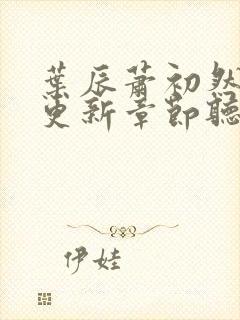 葉辰蕭初然
更新章節聽
伊娃